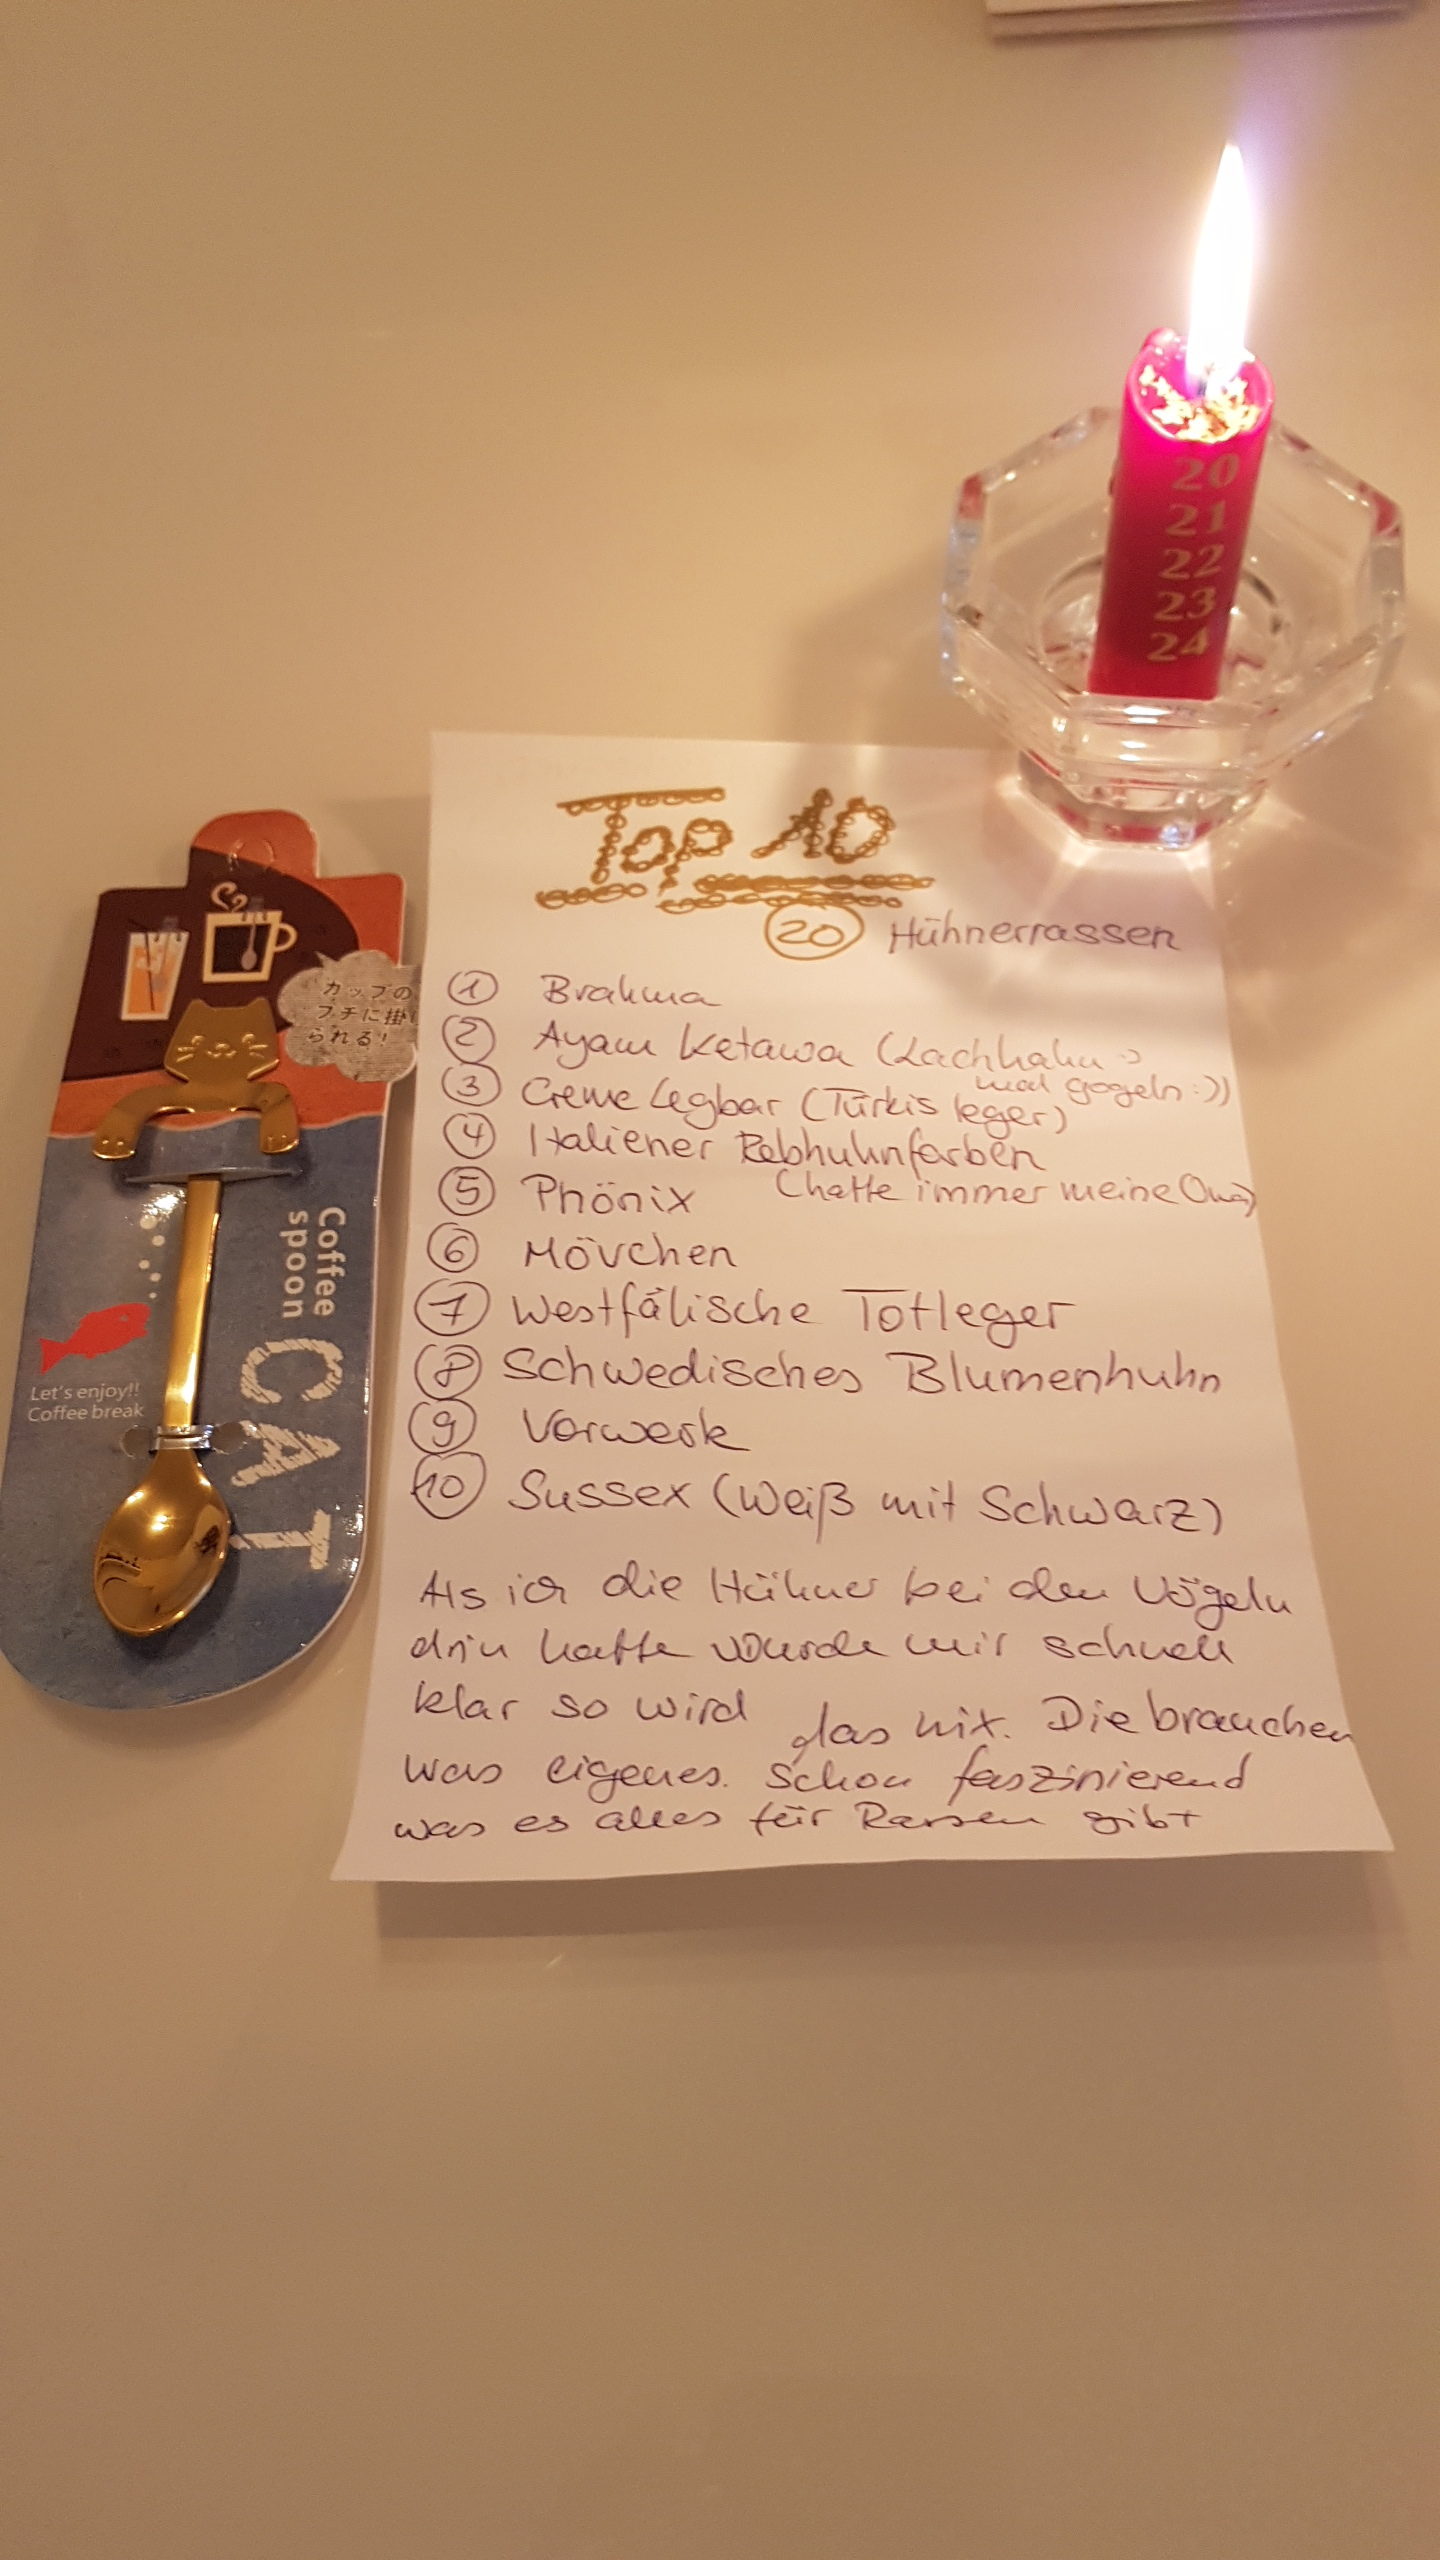 20
21
22
23
24
Top 10
20 Hühnerrassen
1 Brahma
2 Ayam Ketawa (Lachhahn :)
mal googeln :))
3 Creme Legbar (Türkis leger)
4 Italiener Rebhuhnfarben
(hatte immer meine Oma)
5 Phönix
6 Mövchen
7 Westfälische Totleger
8 Schwedisches Blumenhuhn
9 Vorwerk
10 Sussex (Weiß mit Schwarz)
Als ich die Hühner bei den Vögeln
drin hatte wurde mir schnell
klar so wird das nix. Die brauchen
was eigenes. Schon faszinierend
was es alles für Rassen gibt
カップの
フチに掛け
られる!
Coffee
spoon
CAT
Let's enjoy!!
Coffee break